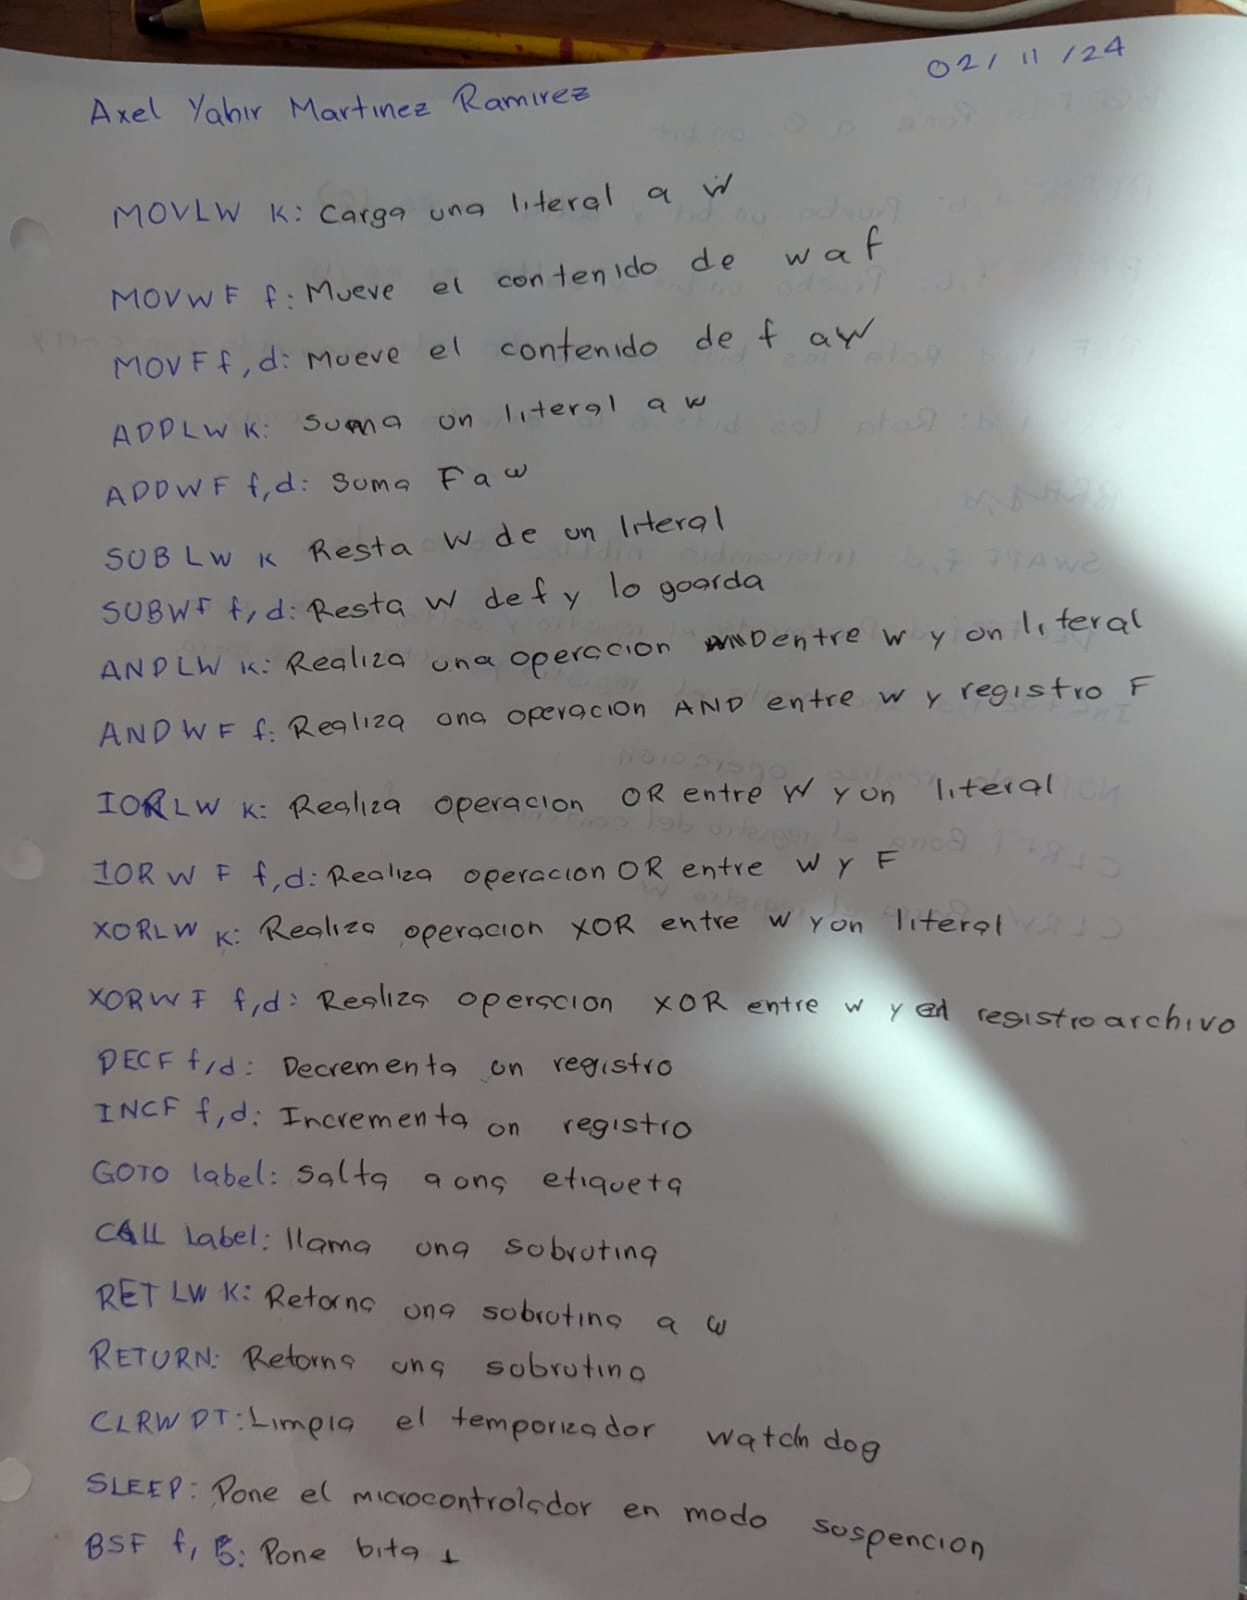 02/11/24
Axel Yahir Martinez Ramirez
MOVLW K: Carga una literal a W
MOVWF f: Mueve el contenido de w a f
MOVF f,d: Mueve el contenido de f a W
ADDLW K: Suma un literal a w
ADDWF f,d: Suma F a w
SUBLW K Resta W de un literal
SUBWF f,d: Resta W de f y lo guarda
ANDLW K: Realiza una operacion AND entre w y un literal
ANDWF f: Realiza una operacion AND entre w y registro F
IORLW K: Realiza operacion OR entre W y un literal
IORWF f,d: Realiza operacion OR entre w y F
XORLW K: Realiza operacion XOR entre w y un literal
XORWF f,d: Realiza operacion XOR entre w y registro archivo
DECF f,d: Decrementa un registro
INCF f,d: Incrementa un registro
GOTO label: Salta a una etiqueta
CALL Label: llama una subrutina
RETLW K: Retorna una subrutina a w
RETURN: Retorna una subrutina
CLRWDT: Limpia el temporizador watch dog
SLEEP: Pone el microcontrolador en modo suspencion
BSF f, B: Pone bit a 1